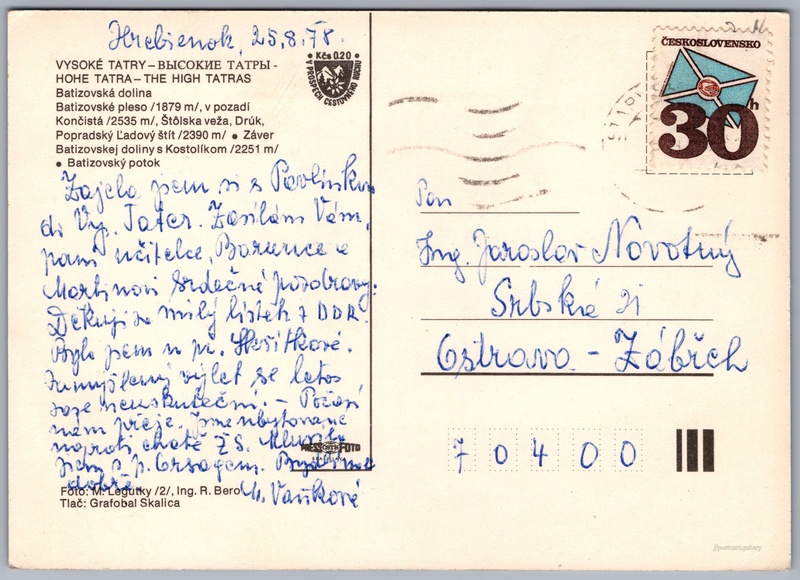 Hrebienok, 25.8.78.
VYSOKÉ TATRY – ВЫСОКИЕ ТАТРЫ -
HOHE TATRA – THE HIGH TATRAS
Batizovská dolina
Batizovské pleso /1879 m/, v pozadí
Končistá /2535 m/, Štôlska veža, Drúk,
Popradský Ľadový štít /2390 m/ ● Záver
Batizovskej doliny s Kostolíkom /2251 m/
● Batizovský potok
• Kčs 0.20 •
V PROSPECH CESTOVNÉHO RUCHU
Zajela jsem si s Pavlínkou
do Vys. Tater. Zasílám Vám,
paní učitelce, Barunce a
Martinovi srdečné pozdravy.
Děkuji za milý lístek z DDR.
Byla jsem u p.
Zamýšlený výlet se letos
zase neuskuteční. – Počasí
nám přeje. Jsme ubytované
naproti chatě ZŠ. Mluvila
jsem s p. Orságem.
dobře.
M. Vaňková
PRESSFOTO
Foto: M. Legutky /2/, Ing. R. Bero
Tlač: Grafobal Skalica
ČESKOSLOVENSKO
30h
Pan
Ing. Jaroslav Novotný
Srbská 21
Ostrava – Zábřeh
7 0 4 0 0